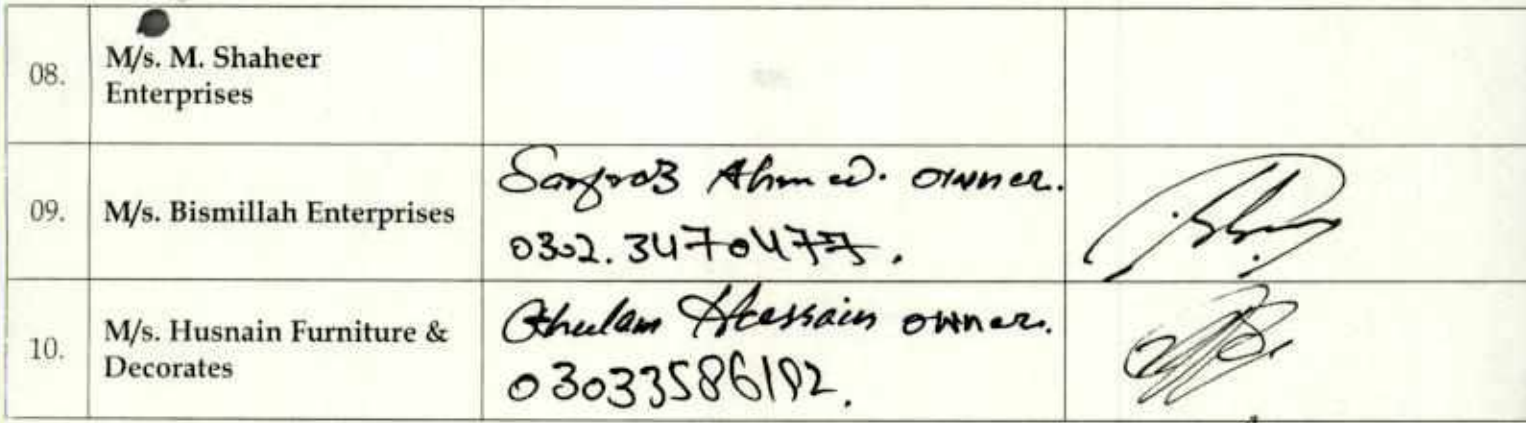 08.
M/s. M. Shaheer
Enterprises
09.
M/s. Bismillah Enterprises
Sarfraz Ahmed. owner.
0302.3470477.
10.
M/s. Husnain Furniture &
Decorates
Ghulam Hussain owner.
03033586192.